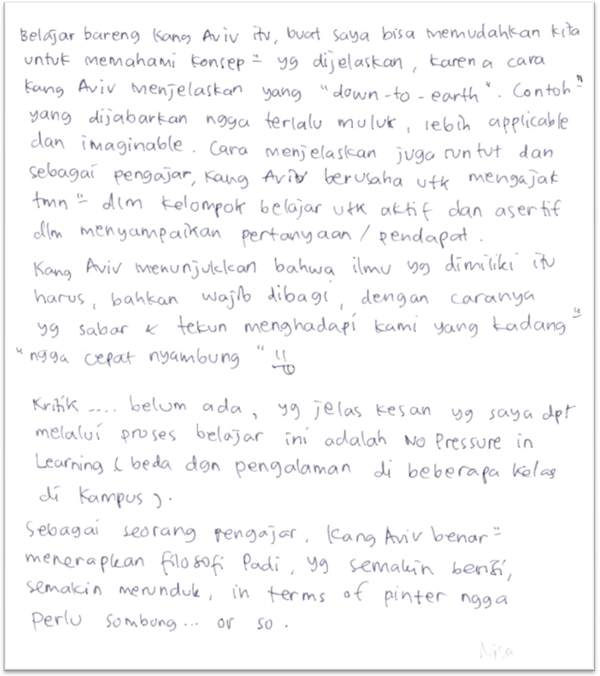 Belajar bareng Kang Aviv itu, buat saya bisa memudahkan kita
untuk memahami konsep" yg dijelaskan, karena cara
Kang Aviv menjelaskan yang "down-to-earth". Contoh"
yang dijabarkan ngga terlalu muluk, lebih applicable
dan imaginable. Cara menjelaskan juga runtut dan
sebagai pengajar, Kang Aviv berusaha utk mengajak
tmn" dlm kelompok belajar utk aktif dan asertif
dlm menyampaikan pertanyaan / pendapat.
Kang Aviv menunjukkan bahwa ilmu yg dimiliki itu
harus, bahkan wajib dibagi, dengan caranya
yg sabar & tekun menghadapi kami yang kadang"
"ngga cepat nyambung"
Kritik .... belum ada, yg jelas kesan yg saya dpt
melalui proses belajar ini adalah No Pressure in
Learning (beda dgn pengalaman di beberapa kelas
di kampus).
Sebagai seorang pengajar, Kang Aviv benar"
menerapkan filosofi Padi, yg semakin berisi,
semakin merunduk, in terms of pinter ngga
perlu sombong... or so.
Nisa